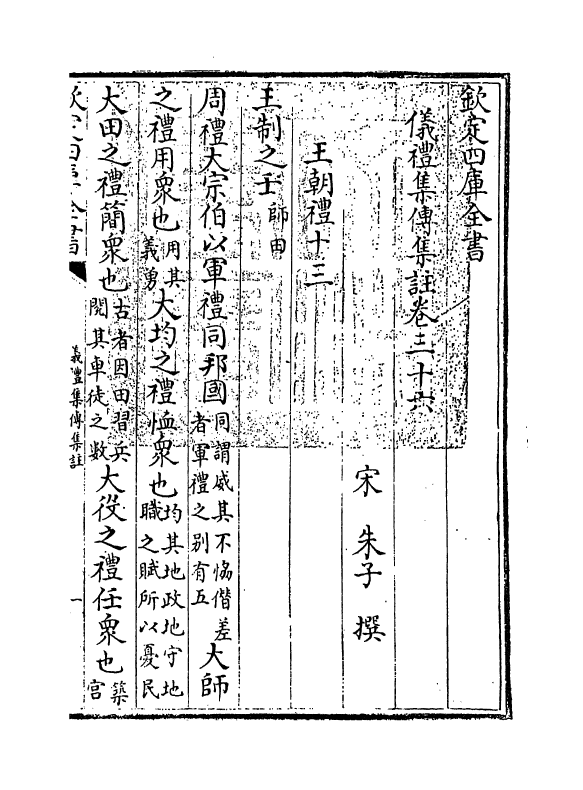 欽定四庫全書
儀禮集傳集註卷三十六
宋 朱子 撰
王朝禮十三
王制之壬 師田
周禮大宗伯以軍禮同邦國同謂威其不恊僭差者軍禮之别有五大師
之禮用衆也用其義勇大均之禮恤衆也均其地政地守地職之賦所以憂民
大田之禮簡衆也古者因田習兵閱其車徒之數大役之禮任衆也築宫
欽定四庫全書
儀禮集傳集註
一